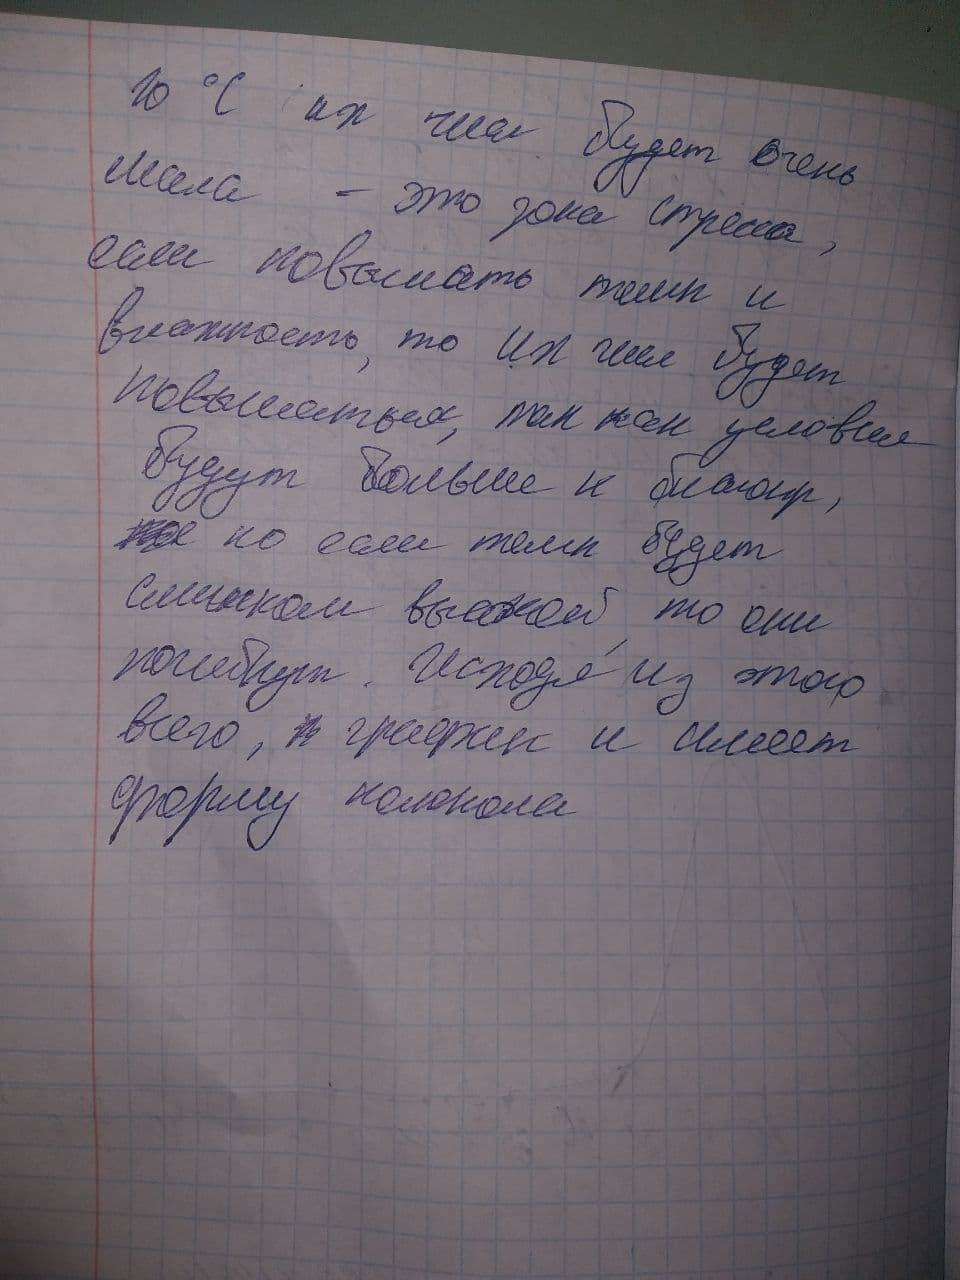 10 °C их чис будет очень
мала - это зона стресса,
если повышать темп и
влажность, то их чис будет
повышаться, так как условия
будут больше к
но если темп будет
слишком высокой, то они
погибнут. Исходя из этого
всего, график и имеет
форму колокола